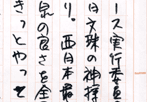 ース実行委員
日文珠の神様
り。西日本最
泉の良さを全
きっとやって